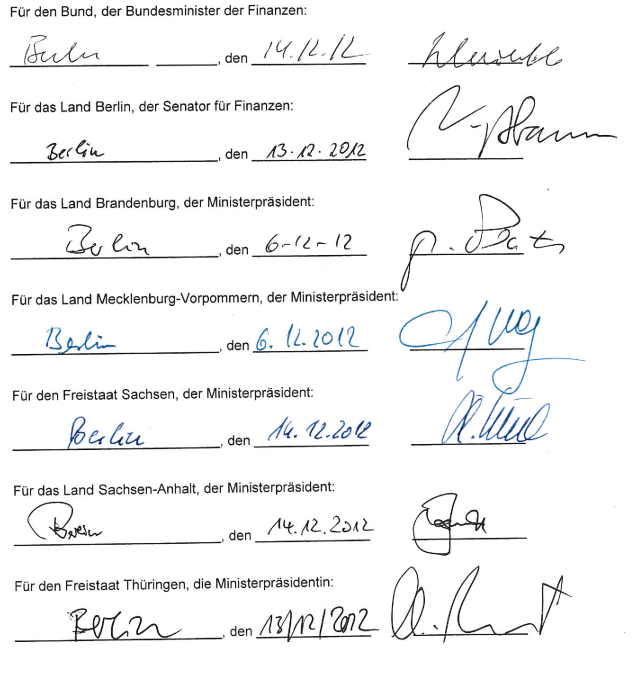 Für den Bund, der Bundesminister der Finanzen:
Berlin , den 14.12.12
Für das Land Berlin, der Senator für Finanzen:
Berlin , den 13.12.2012
Für das Land Brandenburg, der Ministerpräsident:
Berlin , den 6-12-12
Für das Land Mecklenburg-Vorpommern, der Ministerpräsident:
Berlin , den 6.12.2012
Für den Freistaat Sachsen, der Ministerpräsident:
Berlin , den 14.12.2012
Für das Land Sachsen-Anhalt, der Ministerpräsident:
Berlin , den 14.12.2012
Für den Freistaat Thüringen, die Ministerpräsidentin:
Berlin , den 13/12/2012